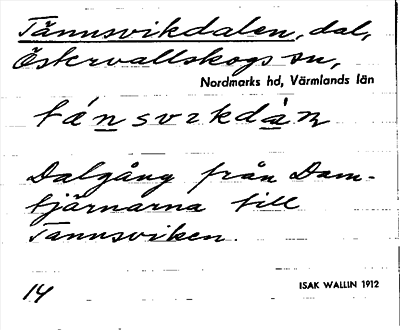 Tännsvikdalen, dal,
Östervallskogs sn,
Nordmarks hd, Värmlands län
tánsvikdàn
Dalgång från Dam-
tjärnarna till
Tannsviken.
14 ISAK WALLIN 1912